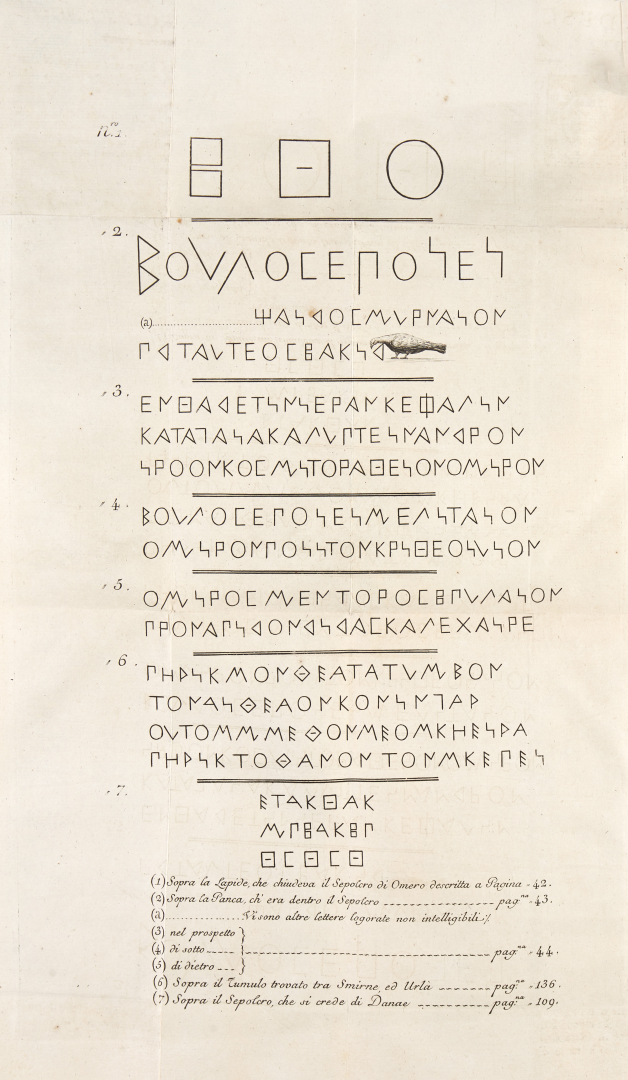 n.º 1. Β Θ Ο
2. ΒΟΥΛΟϹΕΠΟΙΕΙ
(a) ΨΑΙΔΟϹΜΥΡΝΑΙΟΝ
ΓΔΤΑΥΤΕΟϹΒΑΚΙΔ
3. ΕΝΘΑΔΕΤΙΝΙΕΡΑΝΚΕΦΑΛΙΝ
ΚΑΤΑΓΑΙΑΚΑΛΥΠΤΕΙΝΑΝΔΡΟΝ
ΙΡΟΟΝΚΟϹΜΙΤΟΡΑΘΕΙΟΝΟΜΙΡΟΝ
4. ΒΟΥΛΟϹΕΠΟΙΕΙΜΕΛΙΤΑΙΟΝ
ΟΜΙΡΟΝΠΟΙΙΤΟΝΚΡΙΘΕΟΙΥΙΟΝ
5. ΟΜΙΡΟϹΜΕΝΤΟΡΟϹΒΠΥΛΑΙΟΝ
ΠΡΟΝΑΠΙΔΟΝΔΙΔΑϹΚΑΛΕΧΑΙΡΕ
6. ΓΗΡΙΚΜΟΝΘΕΑΤΑΤΥΜΒΟΝ
ΤΟΝΔΙΘΕΑΟΝΚΟΝΙΝΓΑΡ
ΟΥΤΟΜΜΕΘΟΝΜΕΟΜΚΗΕΙΡΑ
ΓΗΡΙΚΤΟΘΑΝΟΝΤΟΝΜΚΕΓΕΙ
7. ΕΤΑΚΘΑΚ
ΜΓΒΑΚΒΓ
ΘϹΘϹΘ
(1) Sopra la Lapide, che chiudeva il Sepolcro di Omero descritta a Pagina 42.
(2) Sopra la Panca, ch' era dentro il Sepolcro pag.na 43.
(a) Vi sono altre lettere logorate non intelligibili
(3) nel prospetto
(4) di sotto pag.na 44.
(5) di dietro
(6) Sopra il Tumulo trovato tra Smirne, ed Urlà pag.na 136.
(7) Sopra il Sepolcro, che si crede di Danae pag.na 109.